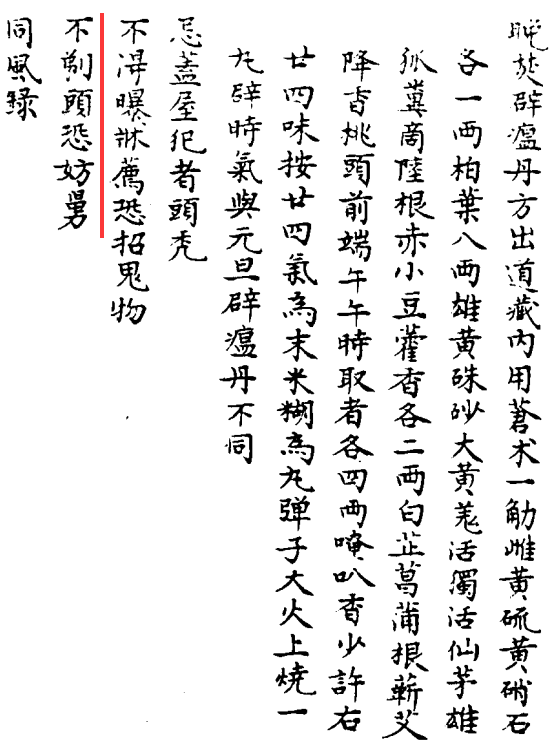 晚焚辟瘟丹方出道藏內用蒼术一觔雌黃硫黃硝石
各一两柏葉八两雄黃硃砂大黃羗活獨活仙茅雄
狐糞商陸根赤小豆藿香各二两白芷菖蒲根蘄艾
降香桃頭前端午午時取者各四两唵叭香少許右
廿四味按廿四氣為末米糊為丸弹子大火上燒一
丸辟時氣與元旦辟瘟丹不同
忌蓋屋犯者頭秃
不淂曝牀薦恐招鬼物
不剃頭恐妨舅
同風録